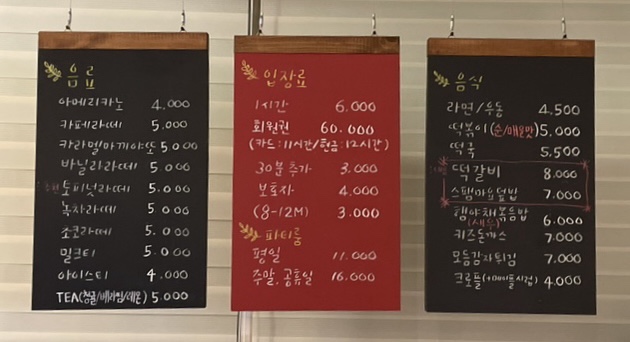 음료
아메리카노 4.000
카페라떼 5.000
카라멜마끼야또 5.000
바닐라라떼 5.000
토피넛라떼 5.000
녹차라떼 5.000
쵸코라떼 5.000
밀크티 5.000
아이스티 4.000
TEA 5.000
입장료
1시간 6.000
회원권 60.000
(카드:11시간/현금:12시간)
30분 추가 3.000
보호자 4.000
(8-12M) 3.000
파티룸
평일 11.000
주말, 공휴일 16.000
음식
라면/우동 4,500
떡볶이(순/매운맛) 5,000
떡국 5,500
떡갈비 8.000
스팸마요덮밥 7.000
햄야채볶음밥 6.000
(새우)
키즈돈까스 7,000
모듬감자튀김 7,000
크로플(+메이플시럽) 4,000